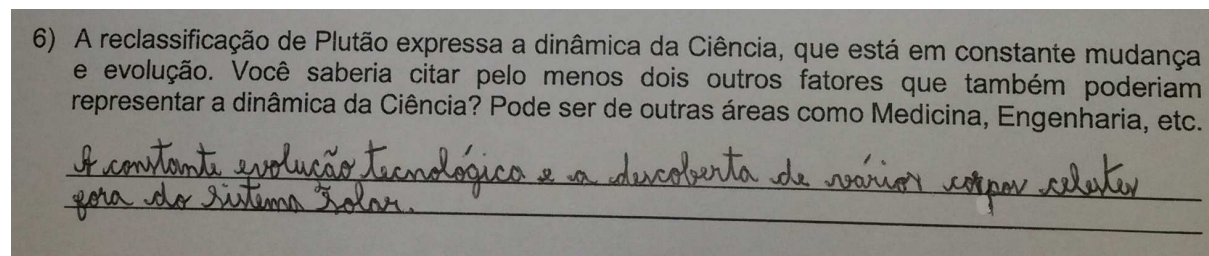 6) A reclassificação de Plutão expressa a dinâmica da Ciência, que está em constante mudança
e evolução. Você saberia citar pelo menos dois outros fatores que também poderiam
representar a dinâmica da Ciência? Pode ser de outras áreas como Medicina, Engenharia, etc.
A constante evolução tecnológica e a descoberta de vários corpos celestes
fora do Sistema Solar.